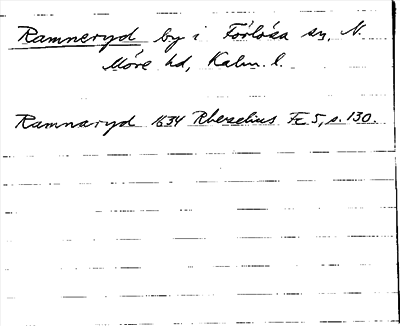 Ramneryd by i Förlösa sn, N.
Möre hd, Kalm. l.
Ramnaryd 1634 Rhezelius Fc 5, s. 130.